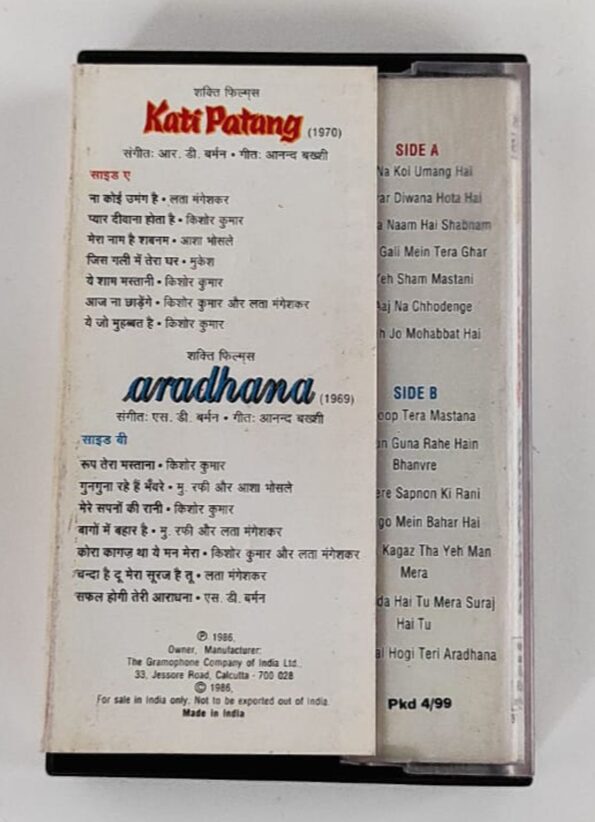 शक्ति फिल्म्स
Kati Patang (1970)
संगीतः आर. डी. बर्मन • गीतः आनन्द बख्शी
साइड ए
ना कोई उमंग है • लता मंगेशकर
प्यार दीवाना होता है • किशोर कुमार
मेरा नाम है शबनम • आशा भोसले
जिस गली में तेरा घर • मुकेश
ये शाम मस्तानी • किशोर कुमार
आज ना छाड़ेंगे • किशोर कुमार और लता मंगेशकर
ये जो मुहब्बत है • किशोर कुमार
शक्ति फिल्म्स
aradhana (1969)
संगीतः एस. डी. बर्मन • गीतः आनन्द बख्शी
साइड बी
रूप तेरा मस्ताना • किशोर कुमार
गुनगुना रहे हैं भँवरे • मु. रफी और आशा भोसले
मेरे सपनों की रानी • किशोर कुमार
बागों में बहार है • मु. रफी और लता मंगेशकर
कोरा कागज़ था ये मन मेरा • किशोर कुमार और लता मंगेशकर
चन्दा है दू मेरा सूरज है तू • लता मंगेशकर
सफल होगी तेरी आराधना • एस. डी. बर्मन
℗ 1986,
Owner, Manufacturer:
The Gramophone Company of India Ltd.,
33, Jessore Road, Calcutta - 700 028
© 1986,
For sale in India only. Not to be exported out of India.
Made in India
SIDE A
Na Koi Umang Hai
Diwana Hota Hai
Naam Hai Shabnam
Gali Mein Tera Ghar
Yeh Sham Mastani
Aaj Na Chhodenge
Jo Mohabbat Hai
SIDE B
Tera Mastana
Guna Rahe Hain
Bhanvre
Sapnon Ki Rani
Mein Bahar Hai
Kagaz Tha Yeh Man
Mera
Hai Tu Mera Suraj
Hai Tu
Hogi Teri Aradhana
Pkd 4/99